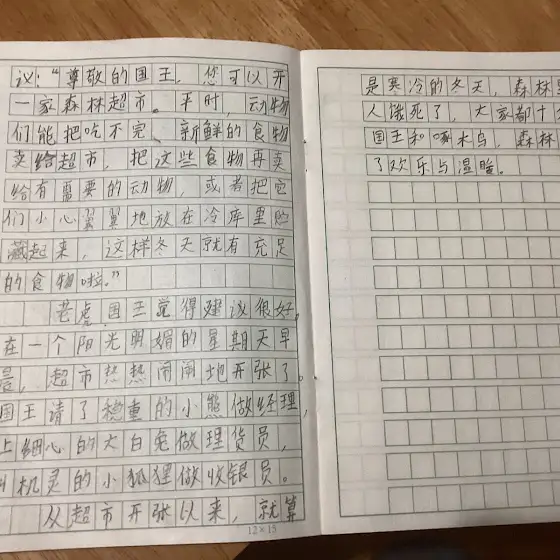 议：“尊敬的国王，您可以开
一家森林超市。平时，动物
们能把吃不完、新鲜的食物
卖给超市，把这些食物再卖
给有需要的动物，或者把它
们小心翼翼地放在冷库里贮
藏起来，这样冬天就有充足
的食物啦。”
老虎国王觉得建议很好。
在一个阳光明媚的星期天早
晨，超市热热闹闹地开张了。
国王请了稳重的小熊做经理，
上细心的大白兔做理货员，
叫机灵的小狐狸做收银员。
从超市开张以来，就算
12×15
是寒冷的冬天，森林里
人饿死了，大家都十分
国王和啄木鸟，森林
了欢乐与温暖。